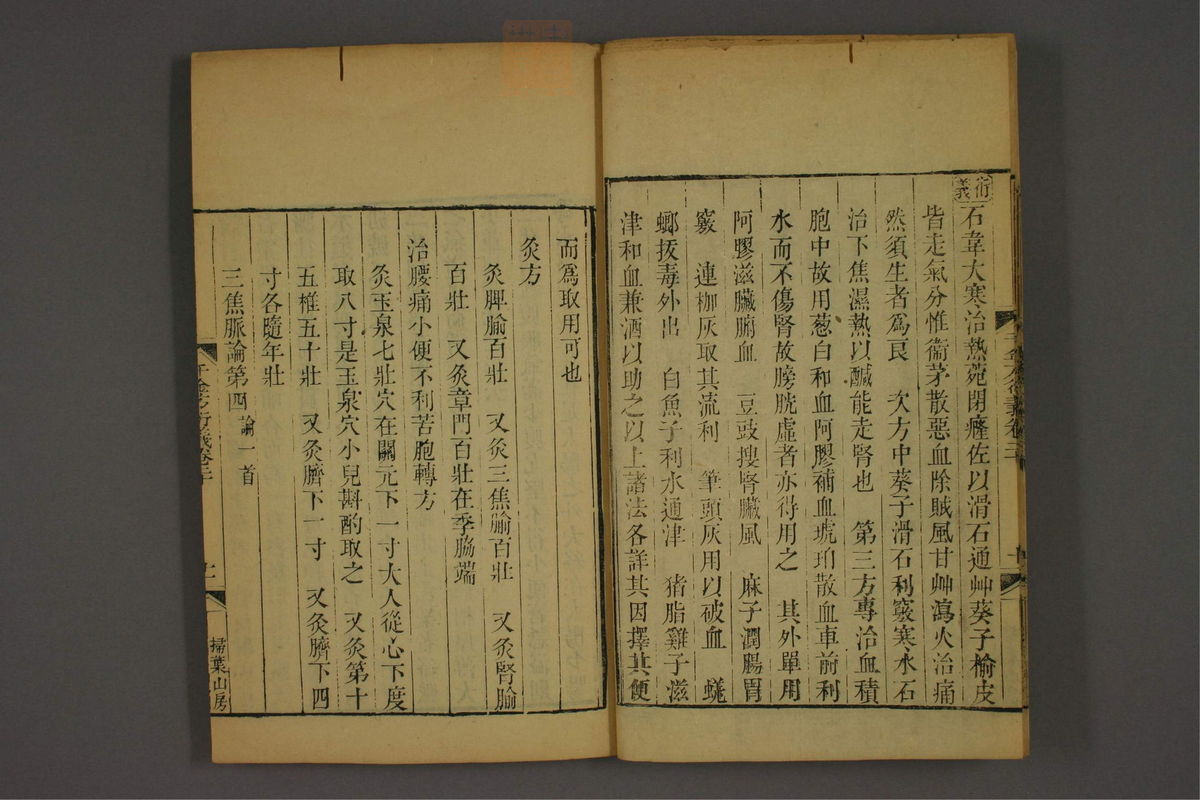 衍義
石韋大寒治熱菀閉癃佐以滑石通艸葵子榆皮
皆走氣分惟衞茅散惡血除賊風甘艸瀉火治痛
然須生者爲良　次方中葵子滑石利竅寒水石
治下焦濕熱以鹹能走腎也　第三方專治血積
胞中故用葱白和血阿膠補血琥珀散血車前利
水而不傷腎故膀胱虛者亦得用之　其外單用
阿膠滋臟腑血　豆豉搜腎臟風　麻子潤腸胃
竅　連枷灰取其流利　筆頭灰用以破血　蟯
螂拔毒外出　白魚子利水通津　猪脂雞子滋
津和血兼酒以助之以上諸法各詳其因擇其便
而爲取用可也
灸方
灸脾腧百壯　又灸三焦腧百壯　又灸腎腧
百壯　又灸章門百壯在季脇端
治腰痛小便不利苦胞轉方
灸玉泉七壯穴在關元下一寸大人從心下度
取八寸是玉泉穴小兒斟酌取之　又灸第十
五椎五十壯　又灸臍下一寸　又灸臍下四
寸各隨年壯
三焦脈論第四　論一首
千金方衍義卷二十
掃葉山房